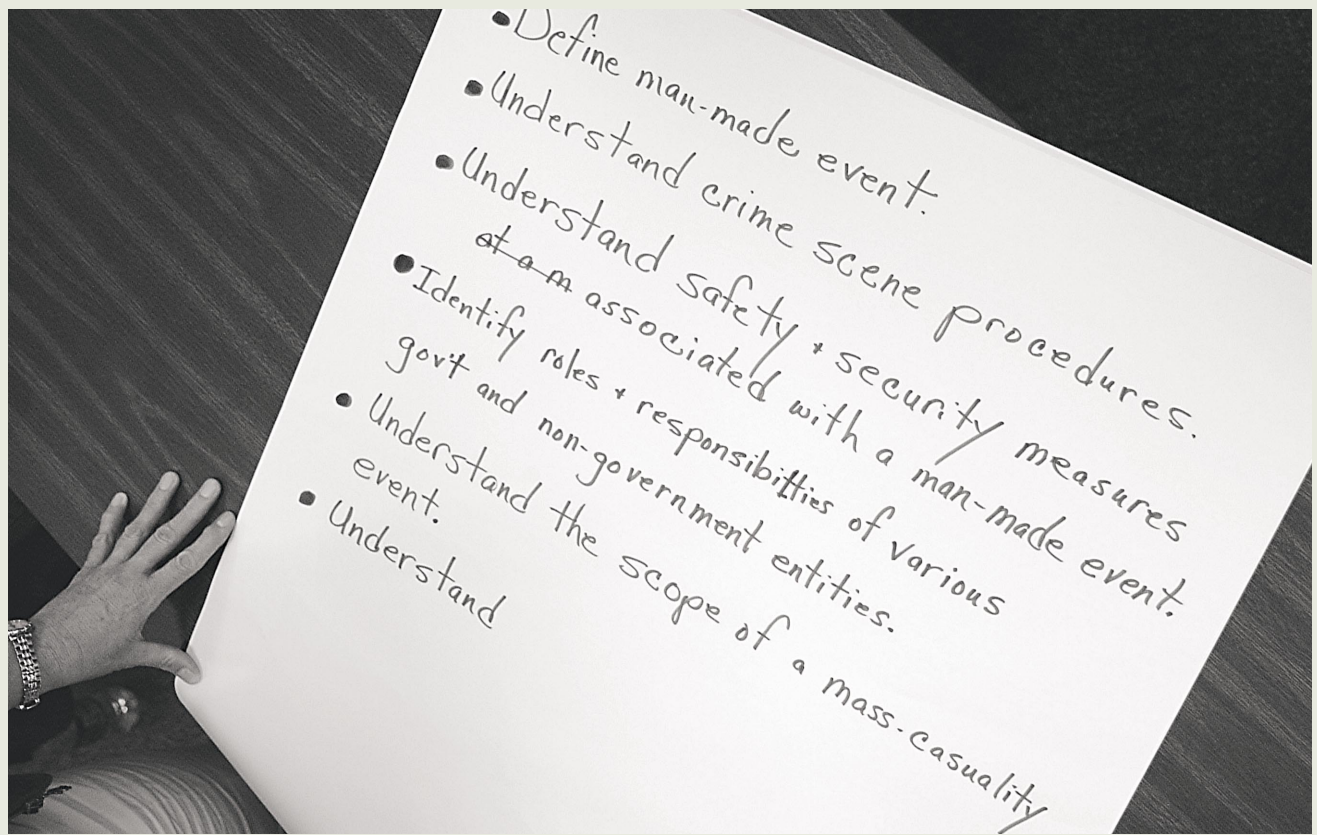 • Define man-made event.
• Understand crime scene procedures.
• Understand safety + security measures
at a m associated with a man-made event.
• Identify roles + responsibilties of various
gov't and non-government entities.
• Understand the scope of a mass-casuality
event.
• Understand